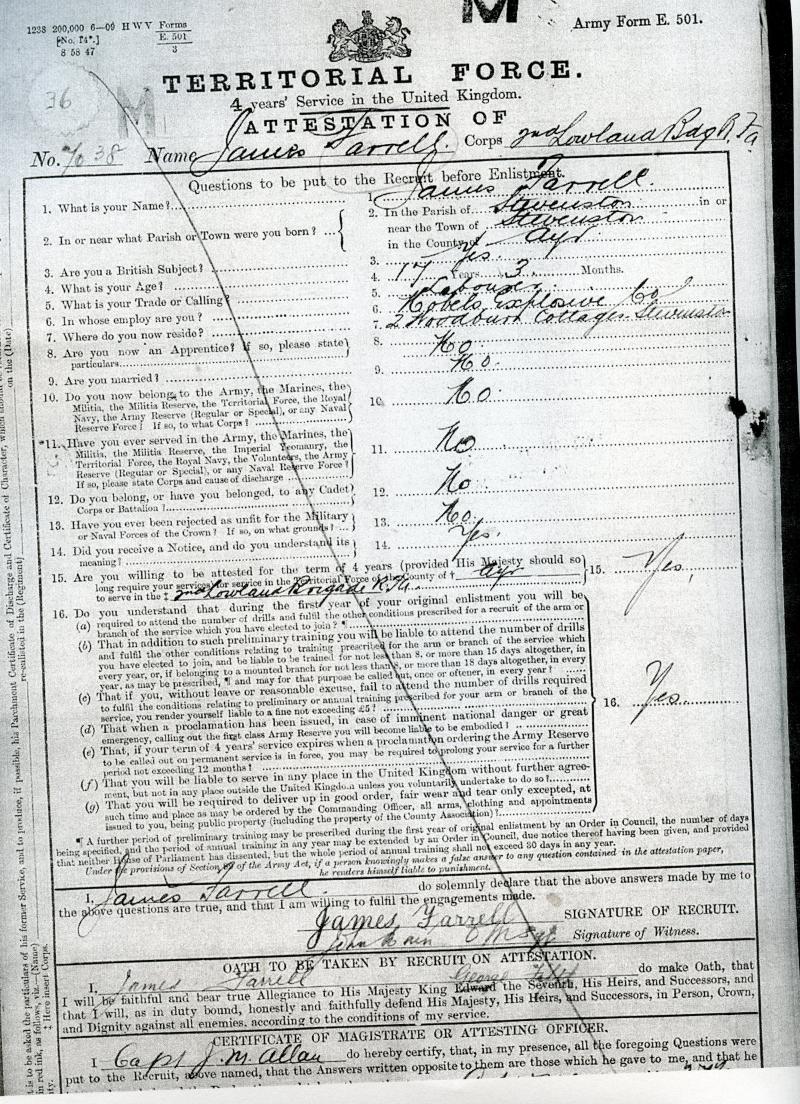 1238 200,000 6—09 H W V Forms
[No. 14*.] E. 501
8 58 47 3
M
Army Form E. 501.
36
M
TERRITORIAL FORCE.
4 years' Service in the United Kingdom.
ATTESTATION OF
No. 7038 Name James Farrell. Corps 2nd Lowland Bdg R.F.a
Questions to be put to the Recruit before Enlistment.
1. What is your Name? 1. James Farrell.
2. In or near what Parish or Town were you born? 2. In the Parish of Stevenston in or
near the Town of Stevenston
in the County of Ayr
3. Are you a British Subject? 3. Yes.
4. What is your Age? 4. 17 Years 3 Months.
5. What is your Trade or Calling? 5. Labourer
6. In whose employ are you? 6. Nobels Explosive Co
7. Where do you now reside? 7. 2 Woodburn Cottages Stevenston
8. Are you now an Apprentice? if so, please state
particulars 8. No.
9. Are you married? 9. No.
10. Do you now belong to the Army, the Marines, the
Militia, the Militia Reserve, the Territorial Force, the Royal
Navy, the Army Reserve (Regular or Special), or any Naval
Reserve Force? If so, to what Corps? 10. No.
*11. Have you ever served in the Army, the Marines, the
Militia, the Militia Reserve, the Imperial Yeomanry, the
Territorial Force, the Royal Navy, the Volunteers, the Army
Reserve (Regular or Special), or any Naval Reserve Force?
If so, please state Corps and cause of discharge 11. No
12. Do you belong, or have you belonged, to any Cadet
Corps or Battalion? 12. No
13. Have you ever been rejected as unfit for the Military
or Naval Forces of the Crown? If so, on what grounds? 13. No.
14. Did you receive a Notice, and do you understand its
meaning? 14. Yes.
15. Are you willing to be attested for the term of 4 years (provided His Majesty should so
long require your services) for service in the Territorial Force of the County of † Ayr
to serve in the ‡ 2nd Lowland Brigade R.F.A. 15. Yes,
16. Do you understand that during the first year of your original enlistment you will be
(a) required to attend the number of drills and fulfil the other conditions prescribed for a recruit of the arm or
branch of the service which you have elected to join? ¶
(b) That in addition to such preliminary training you will be liable to attend the number of drills
and fulfil the other conditions relating to training prescribed for the arm or branch of the service which
you have elected to join, and be liable to be trained for not less than 8, or more than 15 days altogether, in
every year, or, if belonging to a mounted branch for not less than 8, or more than 18 days altogether, in every
year, as may be prescribed, ¶ and may for that purpose be called out, once or oftener, in every year?
(c) That if you, without leave or reasonable excuse, fail to attend the number of drills required
to fulfil the conditions relating to preliminary or annual training prescribed for your arm or branch of the
service, you render yourself liable to a fine not exceeding £5?
(d) That when a proclamation has been issued, in case of imminent national danger or great
emergency, calling out the first class Army Reserve you will become liable to be embodied?
(e) That, if your term of 4 years' service expires when a proclamation ordering the Army Reserve
to be called out on permanent service is in force, you may be required to prolong your service for a further
period not exceeding 12 months?
(f) That you will be liable to serve in any place in the United Kingdom without further agree-
ment, but not in any place outside the United Kingdom unless you voluntarily undertake to do so?
(g) That you will be required to deliver up in good order, fair wear and tear only excepted, at
such time and place as may be ordered by the Commanding Officer, all arms, clothing and appointments
issued to you, being public property (including the property of the County Association)?
16. Yes
¶ A further period of preliminary training may be prescribed during the first year of original enlistment by an Order in Council, the number of days
being specified, and the period of annual training in any year may be extended by an Order in Council, due notice thereof having been given, and provided
that neither House of Parliament has dissented, but the whole period of annual training shall not exceed 30 days in any year.
Under the provisions of Section 99 of the Army Act, if a person knowingly makes a false answer to any question contained in the attestation paper,
he renders himself liable to punishment.
I, James Farrell. do solemnly declare that the above answers made by me to
the above questions are true, and that I am willing to fulfil the engagements made.
James Farrell SIGNATURE OF RECRUIT.
John Signature of Witness.
OATH TO BE TAKEN BY RECRUIT ON ATTESTATION.
I, James Farrell do make Oath, that
George Fifth
I will be faithful and bear true Allegiance to His Majesty King Edward the Seventh, His Heirs, and Successors, and
that I will, as in duty bound, honestly and faithfully defend His Majesty, His Heirs, and Successors, in Person, Crown,
and Dignity against all enemies, according to the conditions of my service.
CERTIFICATE OF MAGISTRATE OR ATTESTING OFFICER.
I Capt J. M. Allan do hereby certify, that, in my presence, all the foregoing Questions were
put to the Recruit, above named, that the Answers written opposite to them are those which he gave to me, and that he
is to be asked the particulars of his former Service, and to produce, if possible, his Parchment Certificate of Discharge and Certificate of Character, which
in red ink, as follows, viz.—(Name) re-enlisted in the (Regiment) on the (Date)
‡ Here insert Corps.